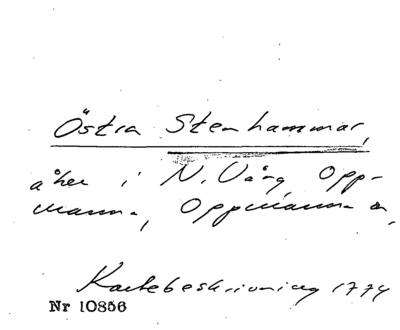 Östra Stenhammar,
åker i N. Vång Opp-
manna, Oppmanna sn,
Kartebeskrivning 1774
Nr 10856